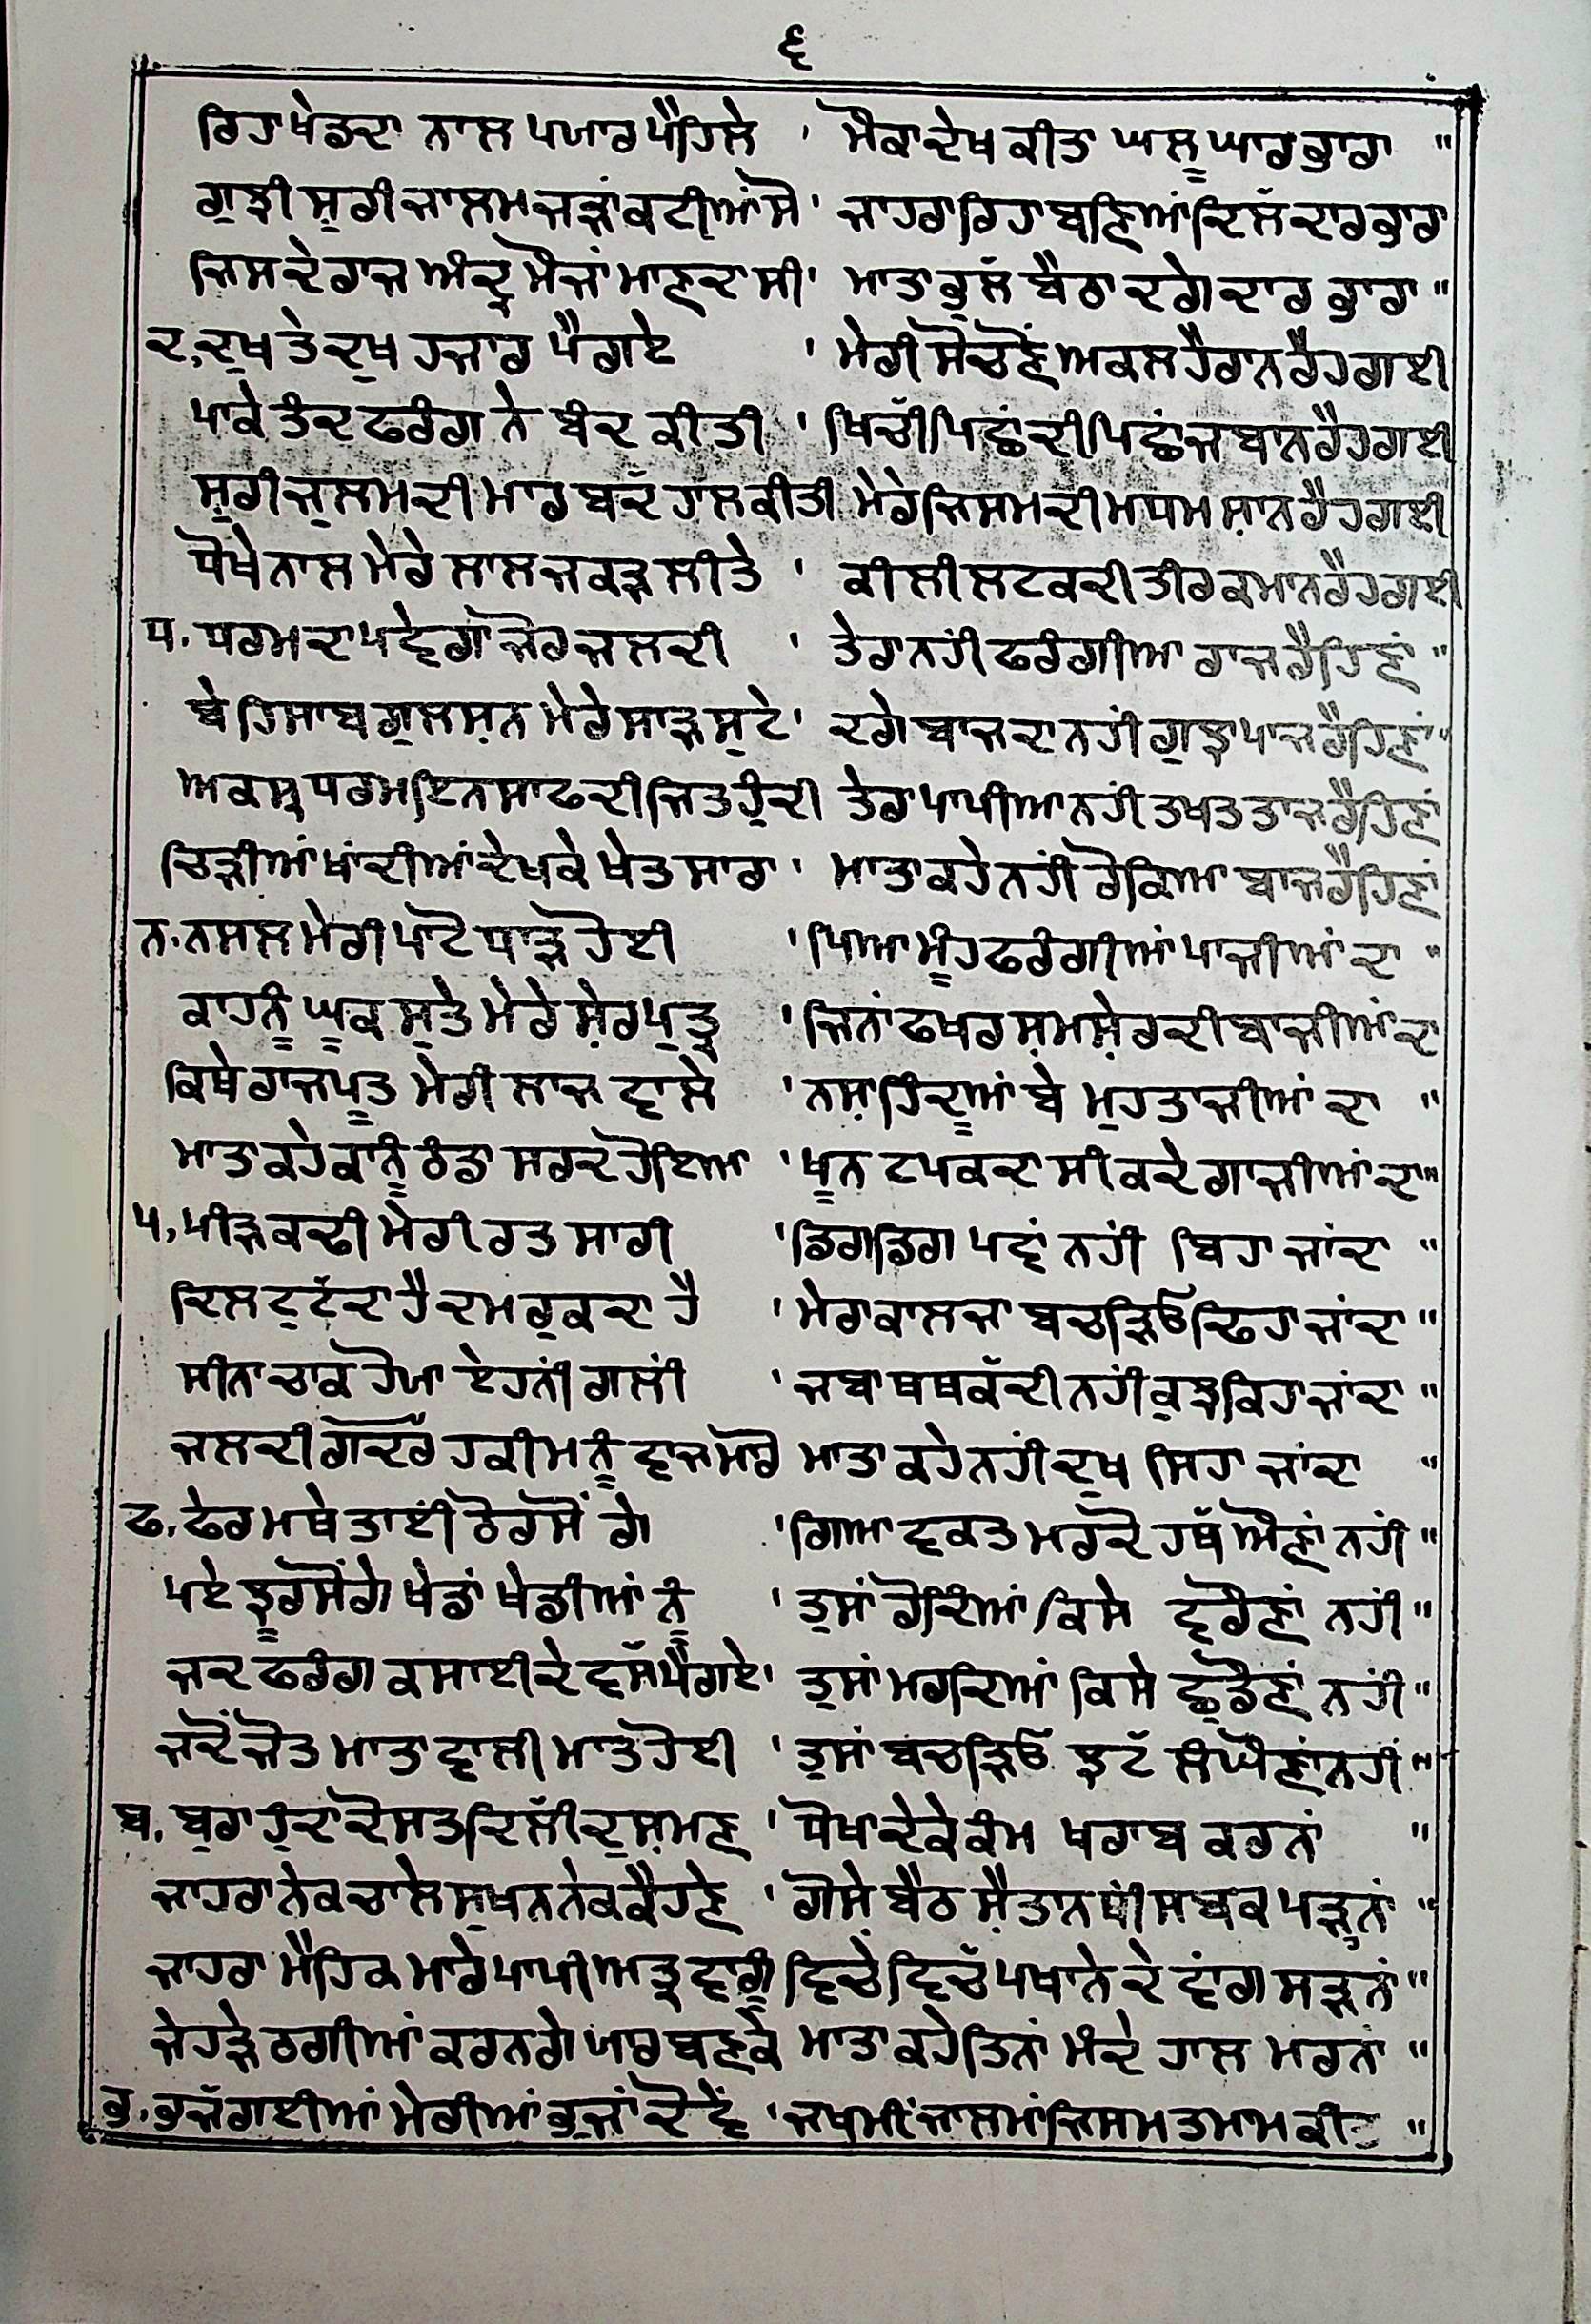 ੬
ਰਿਹਾ ਖੇਡਦਾ ਨਾਲ ਪਯਾਰ ਪੈਹਿਲੇ ' ਮੌਕਾ ਦੇਖ ਕੀਤਾ ਘਲੂਘਾਰ ਭਾਰਾ "
ਗੁਝੀ ਸ਼ੁਰੀ ਜਾਲਮ ਜੜਾਂ ਕਟੀਆਂ ਸੋ ' ਜਾਹਰਾ ਰਿਹਾ ਬਣਿਆਂ ਦਿਲੋਂ ਦਾਰ ਭਾਰਾ
ਜਿਸਦੇ ਰਾਜ ਅੰਦ੍ਰ ਮੌਜਾਂ ਮਾਣਦਾ ਸੀ ' ਮਾਤਾ ਭੁਲੱ ਬੈਠਾ ਦਗੇਦਾਰ ਭਾਰਾ "
ਦ. ਦੁਖ ਤੇ ਦੁਖ ਹਜਾਰ ਪੈਗਏ ' ਮੇਰੀ ਸੋਚਣੋਂ ਅਕਲ ਹੈਰਾਨ ਰੈਹਗਈ
ਪਾਕੇ ਤੰਦ ਫਰੰਗ ਨੇ ਬੰਦ ਕੀਤੀ ' ਖਿਚੀਂ ਪਿਛਾਂਦੀ ਪਿਛਾਂ ਜਬਾਨ ਰੈਹਗਈ
ਸੁਰੀ ਜੁਲਮਦੀ ਮਾਰ ਬਦੱ ਹਾਲ ਕੀਤੀ ਮੇਰੇ ਜਿਸਮਦੀ ਮਧਮ ਸ਼ਾਨ ਰੈਹਗਈ
ਧੋਖੇ ਨਾਲ ਮੇਰੇ ਲਾਲ ਜਕੜ ਲੀਤੇ ' ਕੀਲੀ ਲਟਕਦੀ ਤੀਰ ਕਮਾਨ ਰੈਹਗਈ
ਧ. ਧਰਮ ਦਾ ਪਵੇਗਾ ਜੋਰ ਜਲਦੀ ' ਤੇਰਾ ਨਹੀਂ ਫਰੰਗੀਆ ਰਾਜ ਰੈਹਿਣਾਂ "
ਬੇਹਿਸਾਬ ਗੁਲਸ਼ਨ ਮੇਰੇ ਸਾੜ ਸੁਟੇ ' ਦਗੇਬਾਜ ਦਾ ਨਹੀਂ ਗੁਝਾ ਪਾਜ ਰੈਹਿਣਾਂ "
ਅਕਸ੍ਰ ਧਰਮ ਇਨਸਾਫਦੀ ਜਿਤ ਹੁੰਦੀ ਤੇਰਾ ਪਾਪੀਆ ਨਹੀਂ ਤਖਤ ਤਾਜ ਰੈਹਿਣਾਂ
ਚਿੜੀਆਂ ਖਾਂਦੀਆਂ ਦੇਖਕੇ ਖੇਤ ਸਾਰਾ ' ਮਾਤਾ ਕਹੇ ਨਹੀਂ ਰੋਕਿਆ ਬਾਜ ਰੈਹਿਣਾਂ
ਨ. ਨਸਲ ਮੇਰੀ ਪਾਟੋ ਧਾੜ ਹੋਈ ' ਪਿਆ ਮੂੰਹ ਫਰੰਗੀਆਂ ਪਾਜੀਆਂ ਦਾ "
ਕਾਹਨੂੰ ਘੂਕ ਸੁਤੇ ਮੇਰੇ ਸ਼ੇਰ ਪੁਤ੍ਰ ' ਜਿਨਾਂ ਫਖਰ ਸ਼ਮਸ਼ੇਰਦੀ ਬਾਜੀਆਂ ਦਾ
ਕਿਥੇ ਰਾਜਪੂਤ ਮੇਰੀ ਲਾਜ ਵਾਲੇ ' ਨਸ਼ਾ ਹਿੰਦੂਆਂ ਬੇ ਮੁਹਤਾਜੀਆਂ ਦਾ "
ਮਾਤਾ ਕਹੇ ਕਾਨੂੰ ਠੰਡਾ ਸਰਦ ਹੋਇਆ ' ਖੂਨ ਟਪਕਦਾ ਸੀ ਕਦੇ ਗਾਜੀਆਂ ਦਾ "
ਪ. ਪੀੜ ਕਢੀ ਮੇਰੀ ਰਤ ਸਾਰੀ ' ਡਿਗ ਡਿਗ ਪਵਾਂ ਨਹੀਂ ਬਿਹਾ ਜਾਂਦਾ "
ਦਿਲ ਟੁਟੱਦਾ ਹੈ ਦਮ ਰੁਕਦਾ ਹੈ ' ਮੇਰਾ ਕਾਲਜਾ ਬਚੜਿਓ ਢਿਹਾ ਜਾਂਦਾ "
ਸੀਨਾ ਚਾਕ ਹੋਯਾ ਏਹਨੀਂ ਗਲੀਂ ' ਜਬਾ ਥਥਕੱਦੀ ਨਹੀਂ ਕੁਝ ਕਿਹਾ ਜਾਂਦਾ "
ਜਲਦੀ ਗੋਦਰੋਂ ਹਕੀਮ ਨੂੰ ਵਾਜ ਮਾਰੋ ਮਾਤਾ ਕਹੇ ਨਹੀਂ ਦੁਖ ਸਿਹਾ ਜਾਂਦਾ "
ਫ. ਫੇਰ ਮਥੇ ਤਾਈਂ ਠੋਰਸੋਂ ਗੇ ' ਗਿਆ ਵਕਤ ਮਰਕੇ ਹਥੱ ਔਣਾਂ ਨਹੀਂ "
ਪਏ ਝੂਰਸੋਂਗੇ ਖੇਡਾਂ ਖੇਡੀਆਂ ਨੂੰ ' ਤੁਸਾਂ ਰੋਂਦਿਆਂ ਕਿਸੇ ਵਰੌਣਾਂ ਨਹੀਂ "
ਜਦ ਫਰੰਗ ਕਸਾਈ ਦੇ ਵਸੱ ਪੈਗਏ ' ਤੁਸਾਂ ਮਰਦਿਆਂ ਕਿਸੇ ਛੁਡੌਣਾਂ ਨਹੀਂ "
ਜਦੋਂ ਜੋਤ ਮਾਤਾ ਵਾਲੀ ਮਾਤ ਹੋਈ ' ਤੁਸਾਂ ਬਚੜਿਓ ਝਟੱ ਲੰਘੌਣਾਂ ਨਹੀਂ "
ਬ. ਬੁਰਾ ਹੁੰਦਾ ਦੋਸਤ ਦਿਲੀਂ ਦੁਸ਼ਮਣ ' ਧੋਖਾ ਦੇਕੇ ਕੰਮ ਖਰਾਬ ਕਰਨਾਂ "
ਜਾਹਰਾ ਨੇਕ ਚਾਲੇ ਸੁਖਨ ਨੇਕ ਕੈਹਣੇ ' ਗੋਸ਼ੇ ਬੈਠ ਸ਼ੈਤਾਨ ਥੀਂ ਸਬਕ ਪੜ੍ਹਨਾਂ "
ਜਾਹਰਾ ਮੈਹਿਕ ਮਾਰੇ ਪਾਪੀ ਅਤ੍ਰ ਵਾਗੂੰ ਵਿਚੋ ਵਿਚੱ ਪਖਾਨੇ ਦੇ ਵਾਂਗ ਸੜਨਾਂ "
ਜੇਹੜੇ ਠਗੀਆਂ ਕਰਨਗੇ ਯਾਰ ਬਣਕੇ ਮਾਤਾ ਕਹੇ ਤਿਨਾਂ ਮੰਦੇ ਹਾਲ ਮਰਨਾਂ "
ਭ. ਭਜੱ ਗਈਆਂ ਮੇਰੀਆਂ ਭੁਜਾਂ ਦੋਵੇਂ ' ਜਖਮੀਂ ਜਾਲਮਾਂ ਜਿਸਮ ਤਮਾਮ ਕੀ "